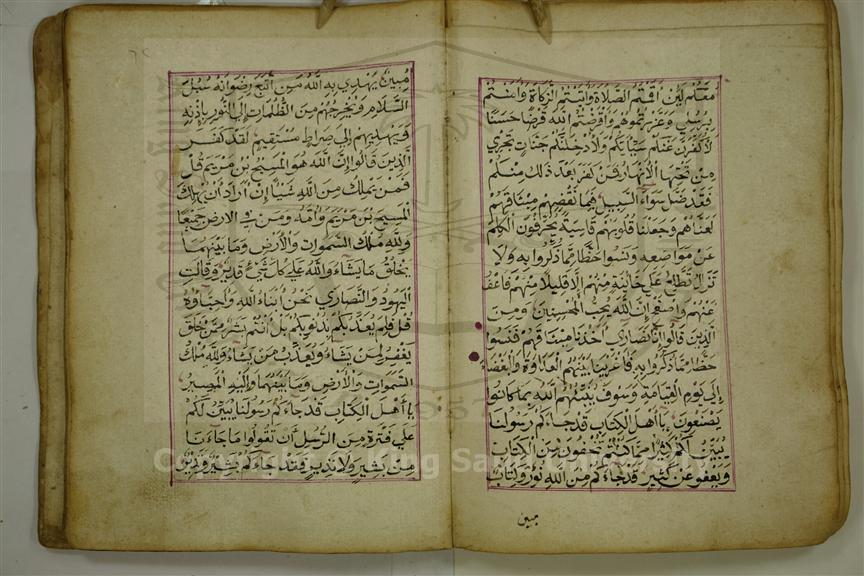 معكم لئن اقمتم الصلاة واتيتم الزكاة وامنتم
برسلي وعزرتموهم واقرضتم الله قرضا حسنا
لاكفرن عنكم سيئاتكم ولادخلنكم جنات تجري
من تحتها الانهار فمن كفر بعد ذلك منكم
فقد ضل سواء السبيل فبما نقضهم ميثاقهم
لعناهم وجعلنا قلوبهم قاسية يحرفون الكلم
عن مواضعه ونسوا حظا مما ذكروا به ولا
تزال تطلع على خائنة منهم الا قليلا منهم فاعف
عنهم واصفح ان الله يحب المحسنين ومن
الذين قالوا انا نصارى اخذنا ميثاقهم فنسوا
حظا مما ذكروا به فاغرينا بينهم العداوة والبغضاء
الى يوم القيامة وسوف ينبئهم الله بما كانوا
يصنعون يا اهل الكتاب قد جاءكم رسولنا
يبين لكم كثيرا مما كنتم تخفون من الكتاب
ويعفو عن كثير قد جاءكم من الله نور وكتاب
مبين
مبين يهدي به الله من اتبع رضوانه سبل
السلام ويخرجهم من الظلمات الى النور باذنه
ويهديهم الى صراط مستقيم لقد كفر
الذين قالوا ان الله هو المسيح بن مريم قل
فمن يملك من الله شيئا ان اراد ان يهلك
المسيح بن مريم وامه ومن في الارض جميعا
ولله ملك السموات والارض وما بينهما
يخلق ما يشاء والله على كل شيء قدير وقالت
اليهود والنصارى نحن ابناء الله واحباؤه
قل فلم يعذبكم بذنوبكم بل انتم بشر ممن خلق
يغفر لمن يشاء ويعذب من يشاء ولله ملك
السموات والارض وما بينهما واليه المصير
يا اهل الكتاب قد جاءكم رسولنا يبين لكم
على فترة من الرسل ان تقولوا ما جاءنا
من بشير ولا نذير فقد جاءكم بشير ونذير
Copyright © King Saud University
1957